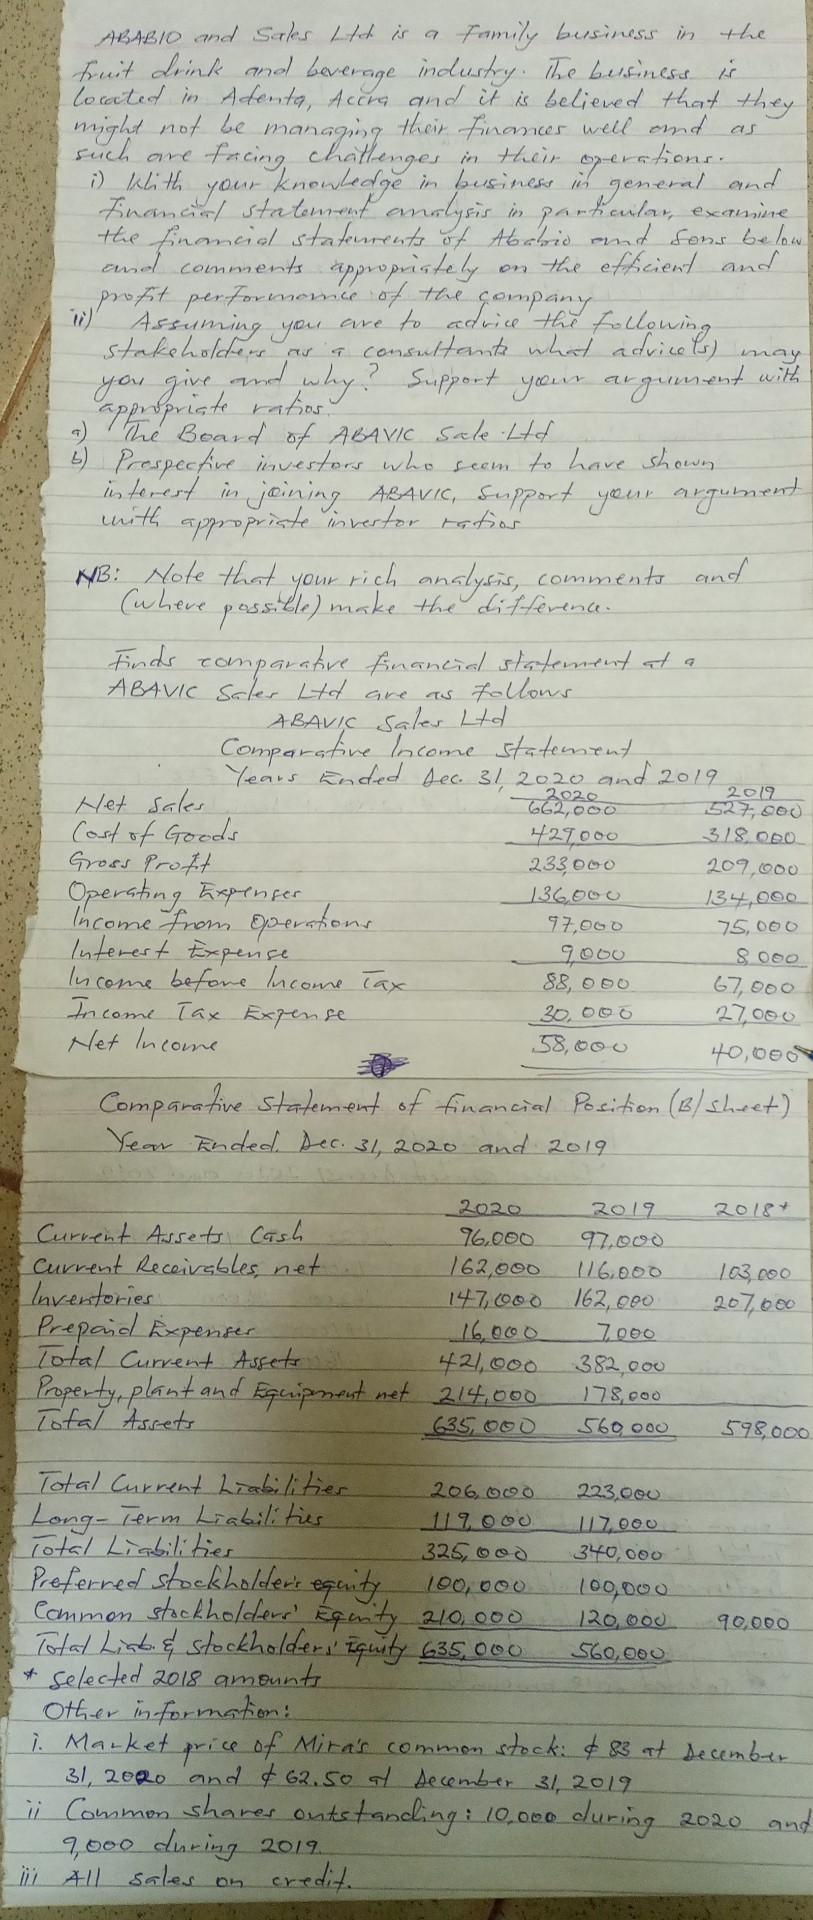 ABABIO and Sales Ltd is a family business in the
fruit drink and beverage industry. The business is
located in Adenta, Accra and it is believed that they
might not be managing their finances well and as
such are facing challenges in their operations.
i) With your knowledge in business in general and
Financial statement analysis in particular, examine
the financial statements of Ababio and Sons below
and comments appropriately on the efficient and
profit performance of the company
ii) Assuming you are to advice the following
stakeholders as a consultants what advice(s) may
you give and why? Support your argument with
appropriate ratios.
a) The Board of ABAVIC Sale Ltd
b) Prespective investors who seem to have shown
interest in joining ABAVIC, Support your argument
with appropriate investor ratios
NB: Note that your rich analysis, comments and
(where possible) make the difference.
Finds comparative financial statement at a
ABAVIC Sales Ltd are as follows
ABAVIC Sales Ltd
Comparative Income Statement
Years Ended Dec. 31, 2020 and 2019
2020 2019
Net Sales 662,000 527,000
Cost of Goods 429,000 318,000
Gross Profit 233,000 209,000
Operating Expenses 136,000 134,000
Income from Operations 97,000 75,000
Interest Expense 9,000 8,000
Income before Income Tax 88,000 67,000
Income Tax Expense 30,000 27,000
Net Income 58,000 40,000
Comparative Statement of Financial Position (B/sheet)
Year Ended. Dec. 31, 2020 and 2019
2020 2019 2018+
Current Assets Cash 96,000 97,000
Current Receivables, net 162,000 116,000 103,000
Inventories 147,000 162,000 207,000
Prepaid Expenses 16,000 7,000
Total Current Assets 421,000 382,000
Property, plant and Equipment net 214,000 178,000
Total Assets 635,000 560,000 598,000
Total Current Liabilities 206,000 223,000
Long-Term Liabilities 119,000 117,000
Total Liabilities 325,000 340,000
Preferred stockholder's equity 100,000 100,000
Common stockholders' Equity 210,000 120,000 90,000
Total Liab. & stockholders' Equity 635,000 560,000
* Selected 2018 amounts
Other information:
i. Market price of Mira's common stock: ¢ 83 at December
31, 2020 and ¢ 62.50 at December 31, 2019
ii Common shares outstanding: 10,000 during 2020 and
9,000 during 2019.
iii All sales on credit.